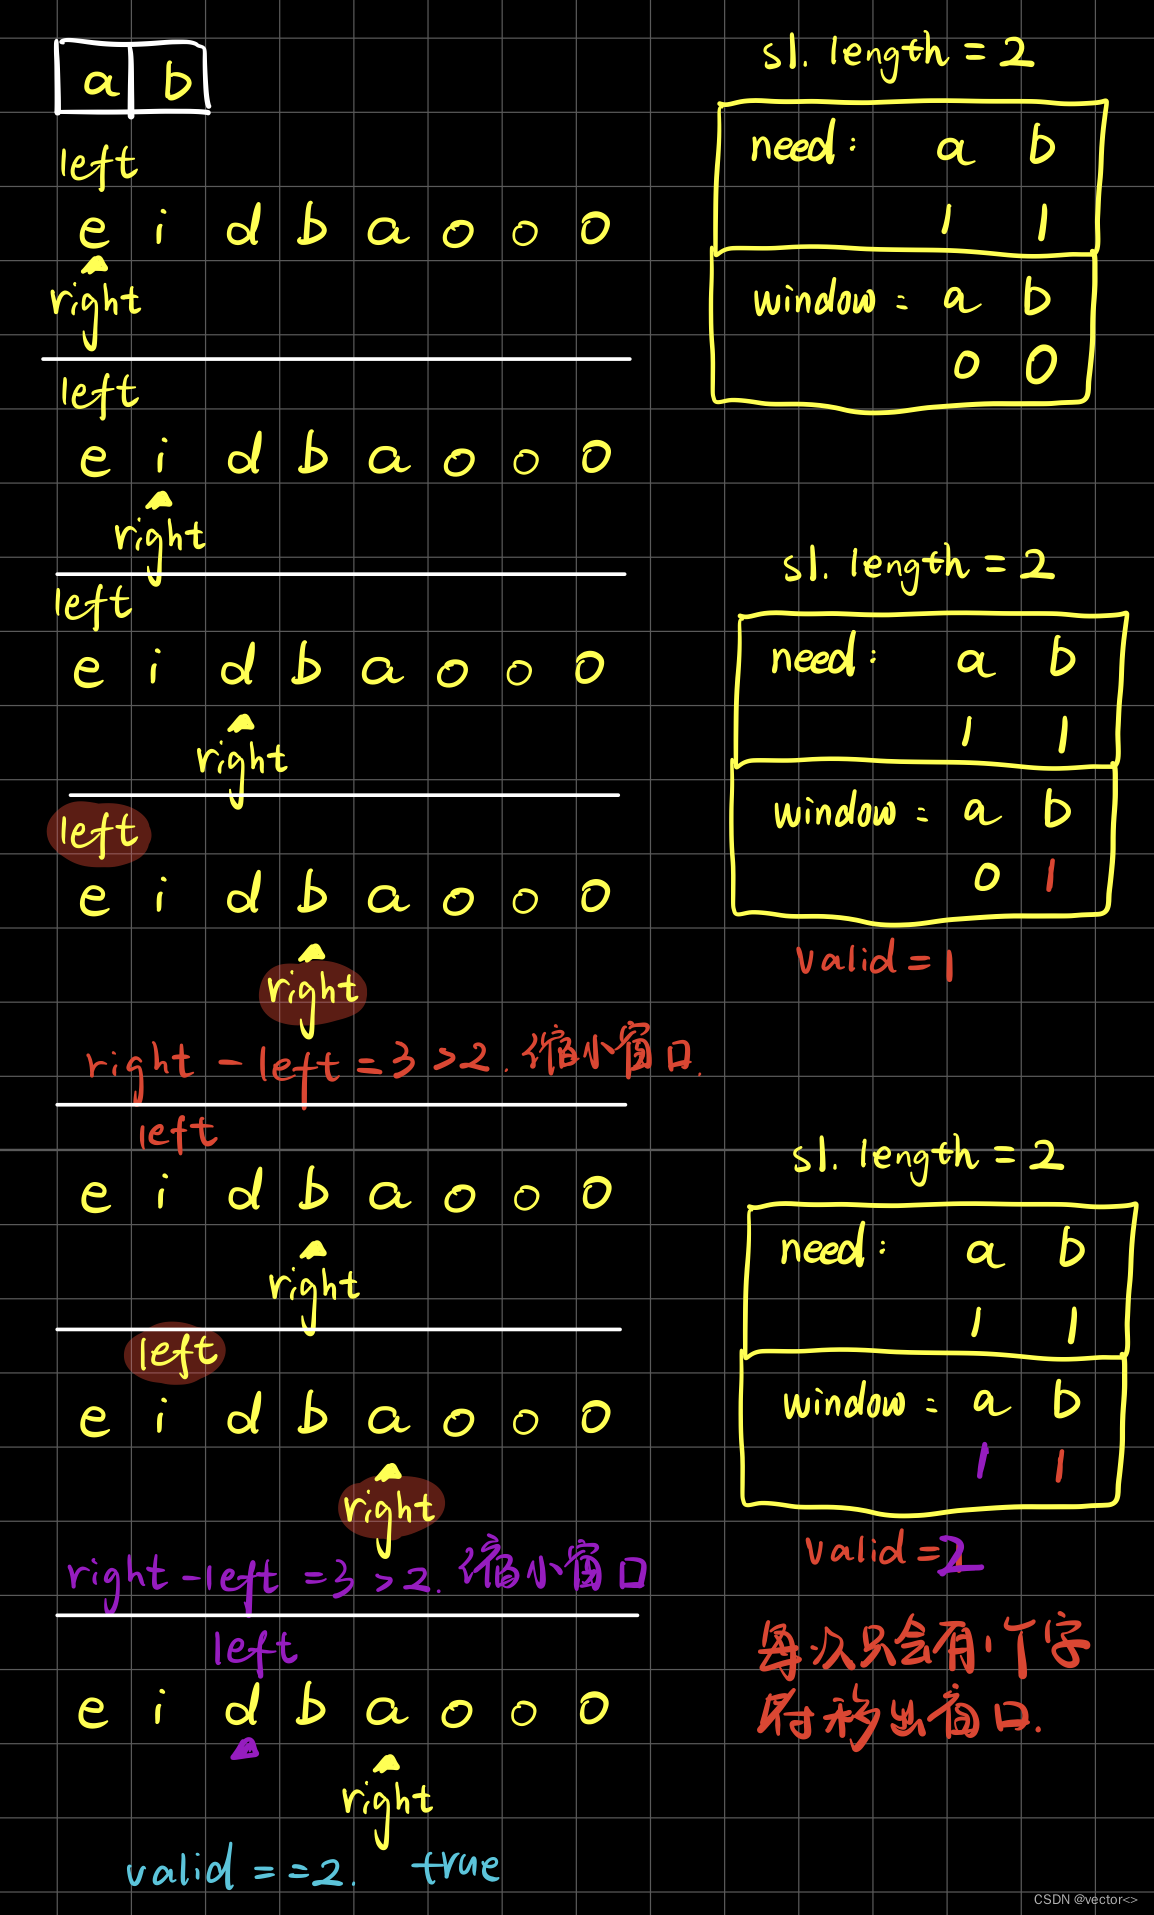 a b
left
e i d b a o o o
right
left
e i d b a o o o
right
left
e i d b a o o o
right
left
e i d b a o o o
right
right - left = 3 > 2. 缩小窗口.
left
e i d b a o o o
right
left
e i d b a o o o
right
right - left = 3 > 2. 缩小窗口
left
e i d b a o o o
right
valid == 2. true
s1. length = 2
need: a b
1 1
window: a b
0 0
s1. length = 2
need: a b
1 1
window: a b
0 1
valid = 1
s1. length = 2
need: a b
1 1
window: a b
1 1
valid = 2
每次只会有1个字
符移出窗口.
CSDN @vector<>